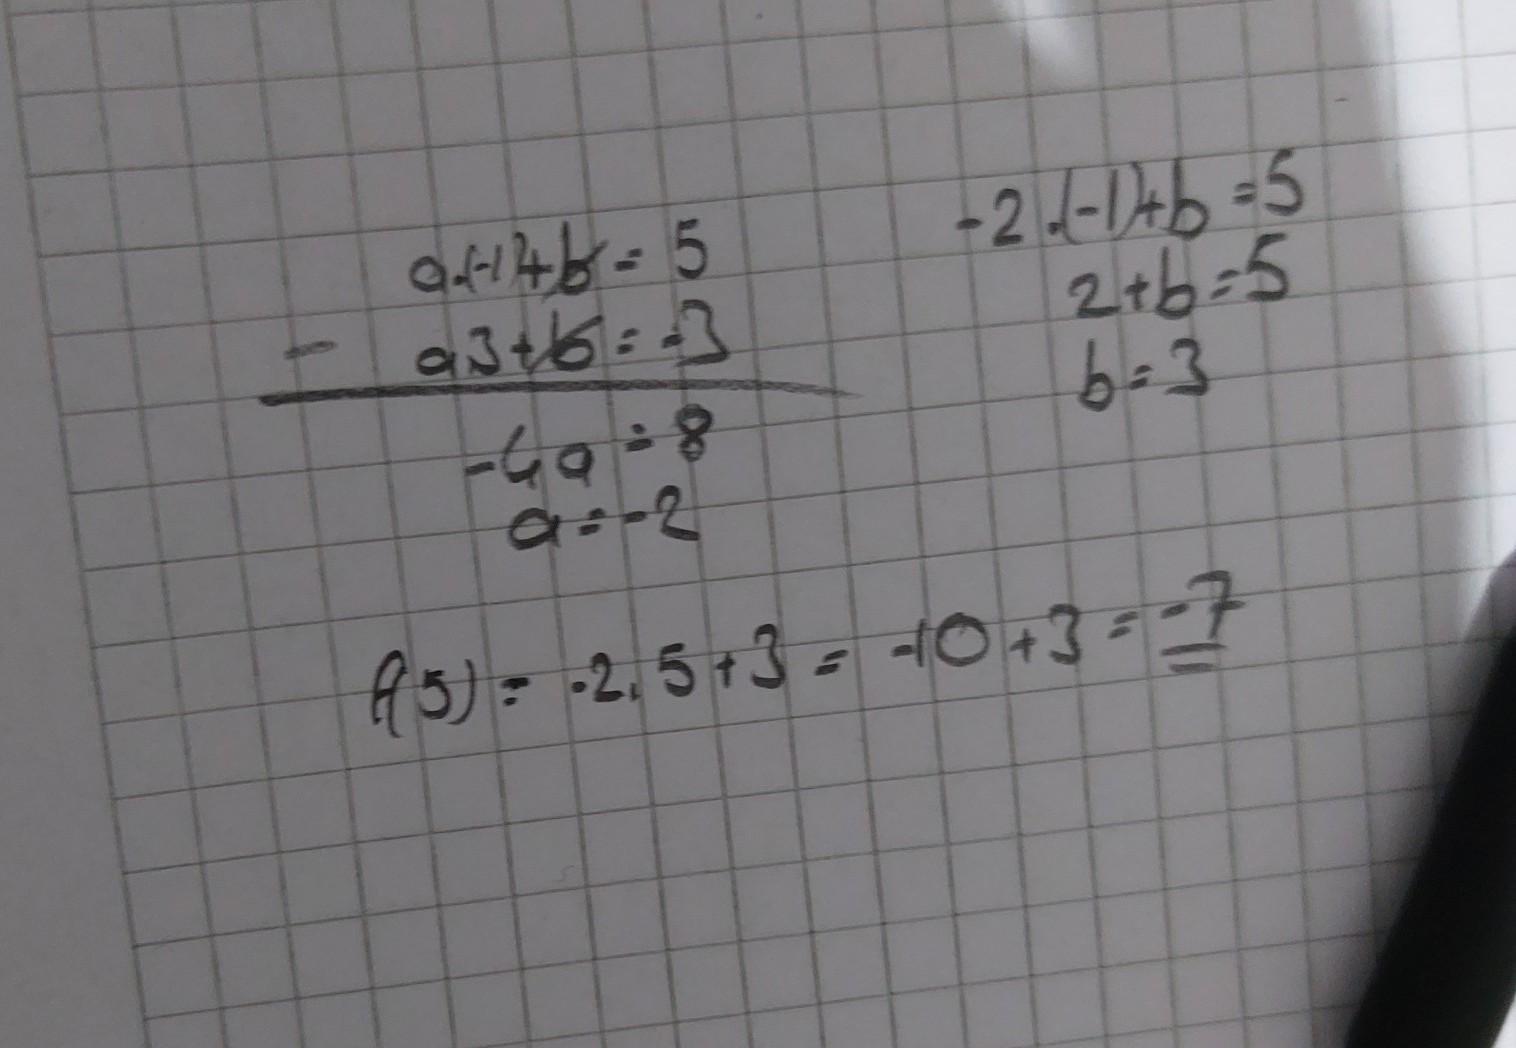 a.(-1)+b = 5
- a3+b = -3
-4a = 8
a = -2
-2.(-1)+b = 5
2+b = 5
b = 3
f(5) = -2.5+3 = -10+3 = -7